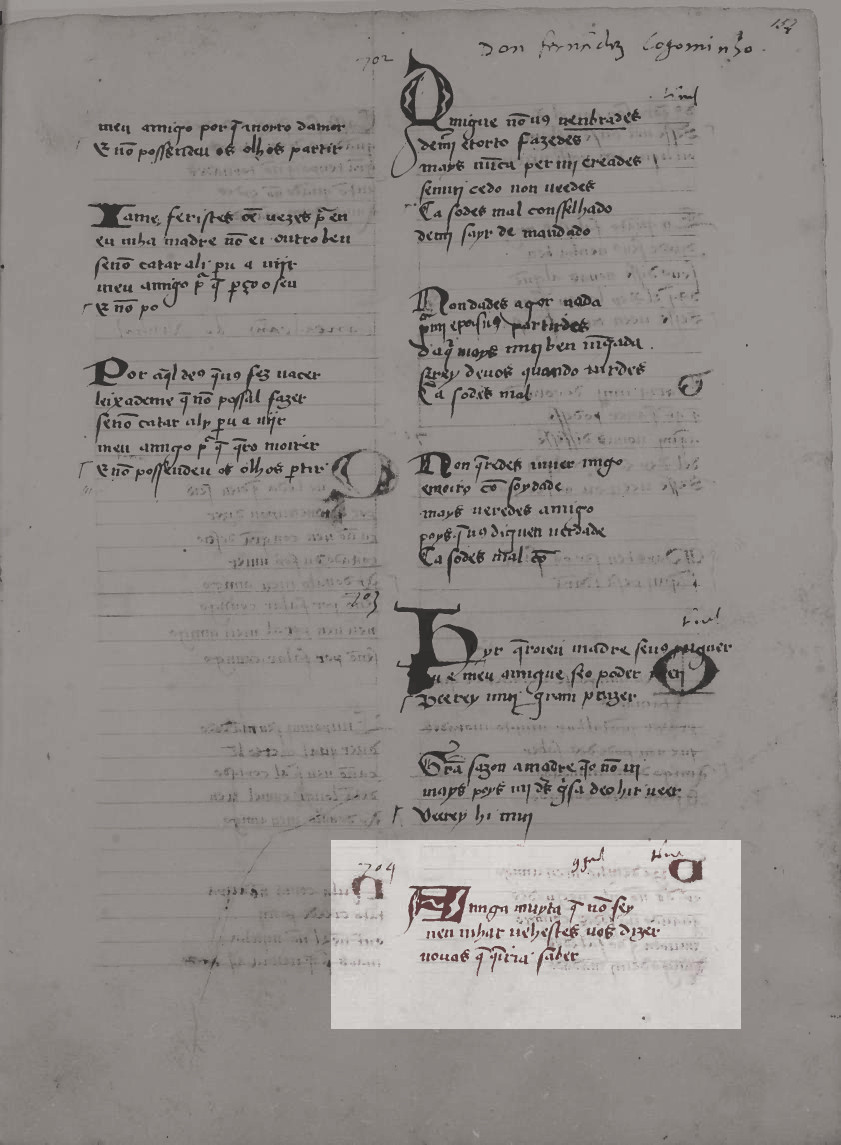 152
Don fernãdez Cogominho.
702
meu amigo por q̃ morto damor
E nõ possendeu os olhos partir
Iame, feristes cẽ uezes p̃ en
eu mha madre nõ ei outro ben
senõ catar ali p̃u a uijr
meu amigo p̃ q̃ perço o sen
E nõ po
Por aq̃l deꝯ q̃uꝯ fez nacer
leixademe q̃ nõ possal fazer
senõ catar aly p̃u a uijr
meu amigo p̃ q̃ q̃ro moirer
E nõ possendeu os olhos p̃tir
Amigue nõ uꝯ nenbrades
demj e torto fazedes
mays nũca per mi creades
senmj cedo non ueedes
Ca sodes mal conselhado
demj sayr de mandado
Non dades agor nada
p̃mj e poisuꝯ partirdes
daq̃ mays muj ben uĩgada
serey deuos quando uirdes
Ca sodes mal
Non q̃redes uiuer migo
e moiro cõ soydade
mays ueredes amigo
poys q̃ uꝯ diguen uerdade
Ca sodes mal cõ
703
Hyr q̃roieu madre seuꝯ prouguer
u e meu amigue seo poder
Veerey muj gram prazer
Grã sazon a madre q̃o nõ ui
mays poys mi dẽs g̃sa deo hir ueer
Veerey hi muj
704
Amiga muyta q̃ nõ sey
nen mhar uehestes uos dizer
nouas q̃ q̃ria saber